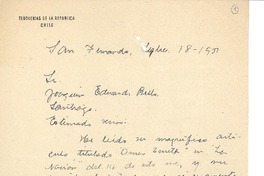 TESORERIAS DE LA REPUBLICA
CHILE
San Fernando, Sepbre. 18-195
Sr.
Joaquín Edwards Bello
Santiago.
Estimado señor:
He leído su magnífico artí-
culo titulado Omer Emeth" en "La
Nación" del 14 de este mes, y me